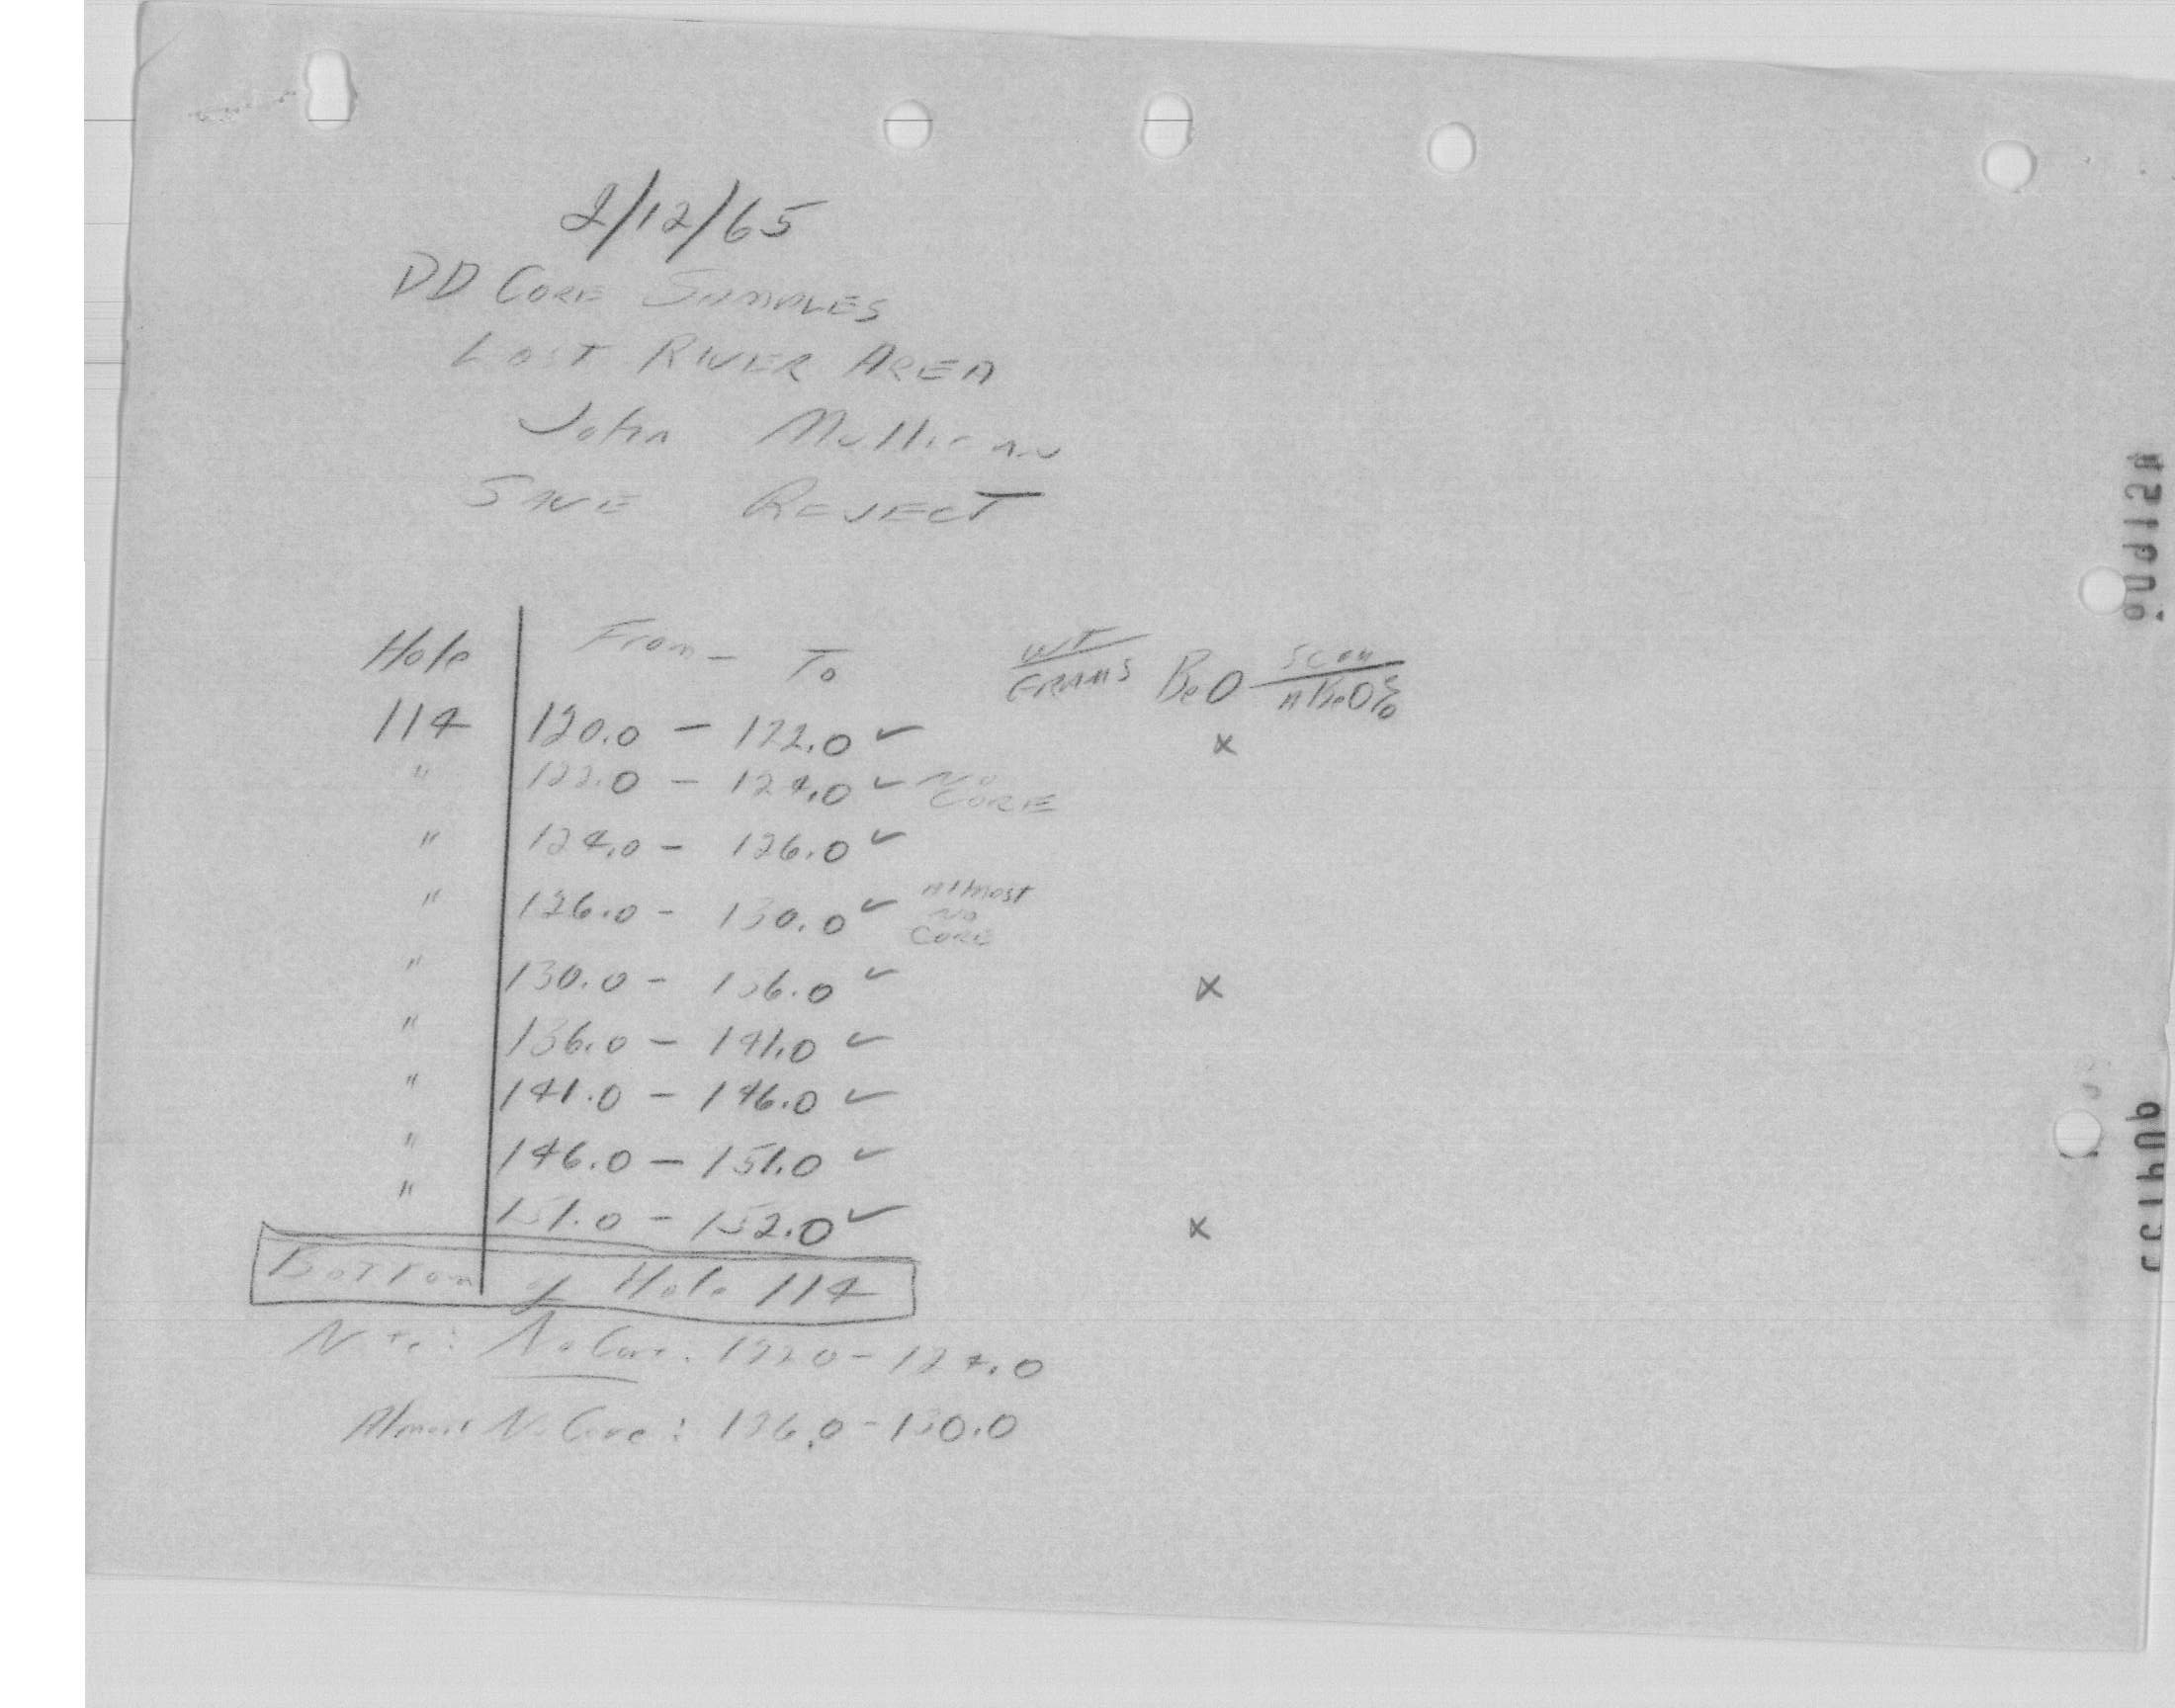 2/12/65
DD CORE SAMPLES
LOST RIVER AREA
John Mulligan
SAVE REJECT
Hole From - To WT/GRAMS BeO SCAN/nBeO%
114 120.0 - 122.0 ✓ x
" 122.0 - 124.0 ✓ NO CORE
" 124.0 - 126.0 ✓
" 126.0 - 130.0 ✓ Almost NO CORE
" 130.0 - 136.0 ✓ x
" 136.0 - 141.0 ✓
" 141.0 - 146.0 ✓
" 146.0 - 151.0 ✓
" 151.0 - 152.0 ✓ x
Bottom of Hole 114
Note: No Core: 122.0 - 124.0
Almost No Core: 126.0 - 130.0